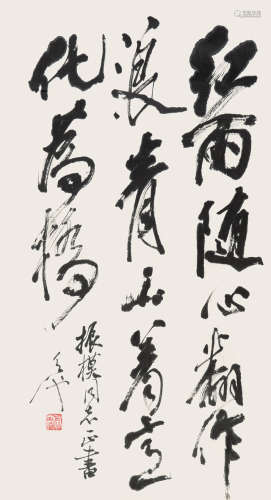 红雨随心翻作
浪青山着意
化為橋
振模同志正書